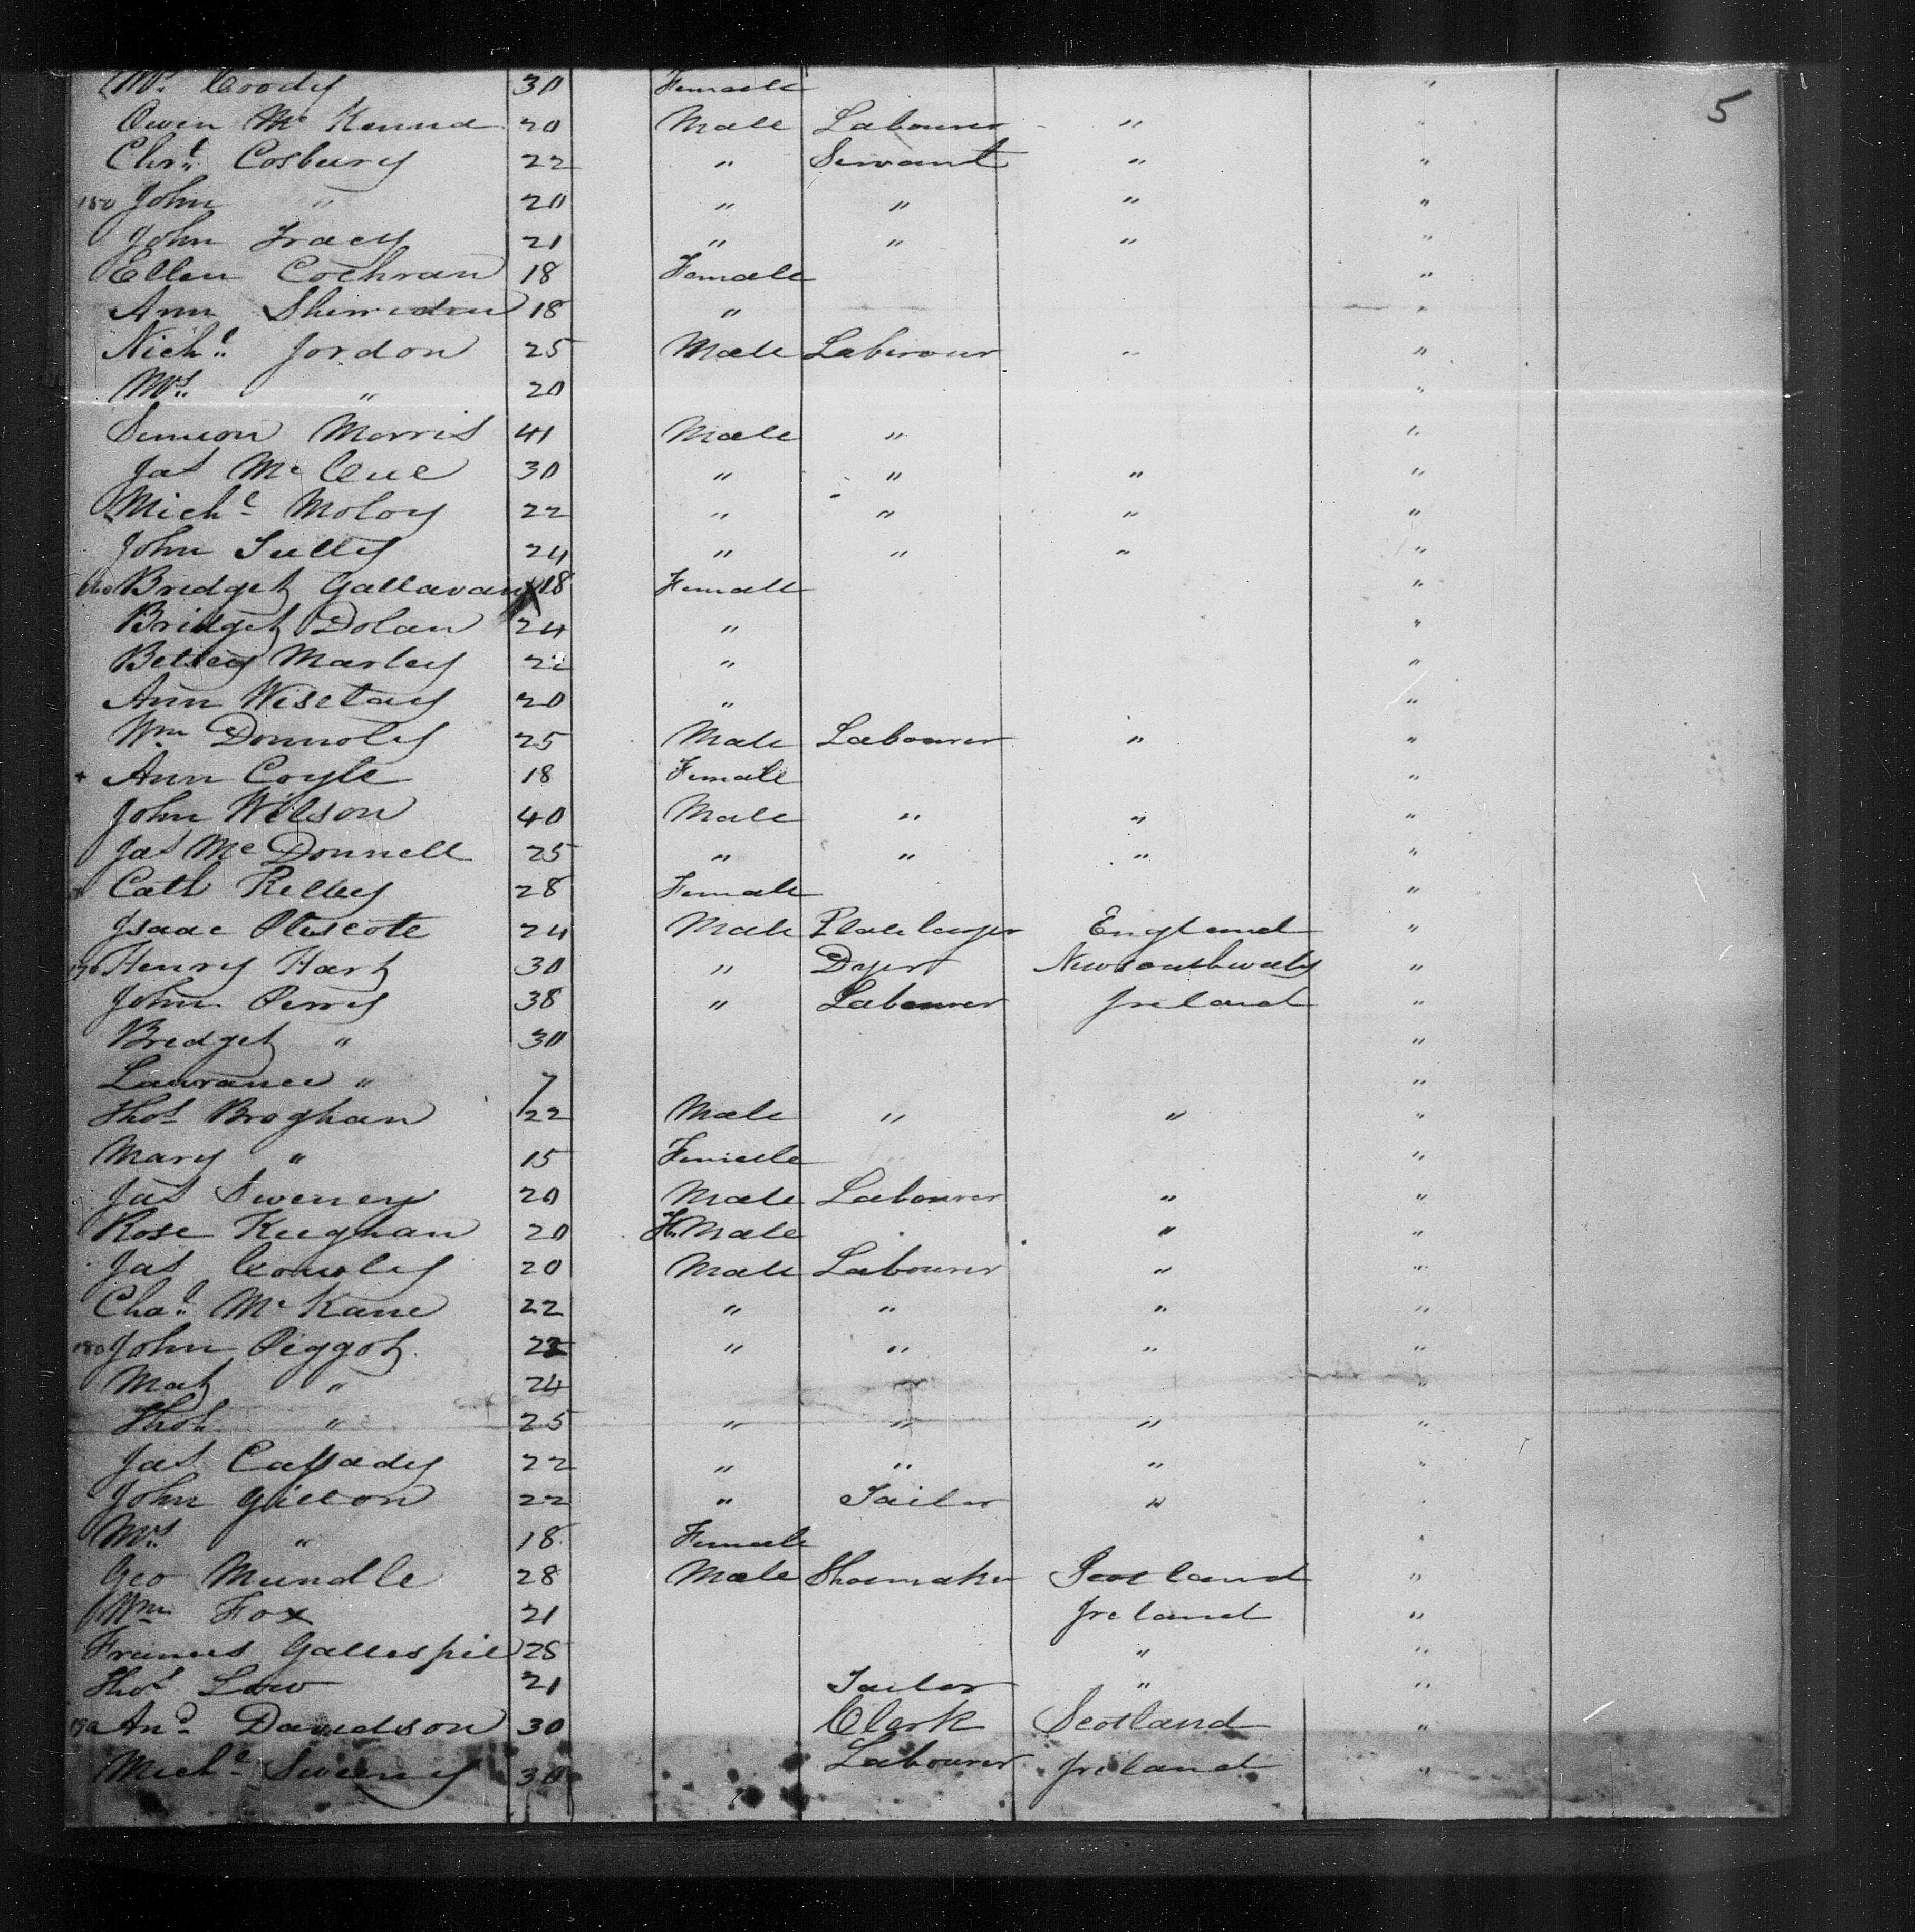 5
Mrs. Coody 30 Female "
Owen Mc Kenna 20 Male Labourer " "
Chrs. Cosbury 22 " Servant " "
150 John " 20 " " " "
John Tracy 21 " " " "
Ellen Cochran 18 Female "
Ann Sherridan 18 " "
Nichl. Jordon 25 Male Laberour " "
Mrs. " 20 "
Simeon Morris 41 Male " "
Jas Mc Cue 30 " " " "
Michl Moloy 22 " " " "
John Tully 24 " " " "
160 Bredget Gallavan X 18 Female "
Bridget Dolan 24 " "
Betsey Marley 22 " "
Ann 20 " "
Wm Donnoly 25 Male Labourer " "
+ Ann Coyle 18 Female "
John Wilson 40 Male " " "
Jas Mc Donnell 25 " " " "
Cath Relley 28 Female "
Isaac 24 Male Plate layer England "
170 Henry Hart 30 " Dyer Newsouthwales "
John Perry 38 " Labourer Ireland "
Bredget " 30 "
Lawrance " 7 "
Thos Broghan 22 Male " " "
Mary " 15 Female "
Jas Sweney 20 Male Labourer " "
Rose Keeghan 20 FeMale " "
Jas Conoly 20 Male Labourer " "
Chas. Mc Kane 22 " " " "
180 John Piggot 22 " " " "
Mat " 24 "
Thos " 25 " " " "
Jas Cassady 22 " " " "
John Gillon 22 " Tailor " "
Mrs. " 18 Female "
Geo Mundle 28 Male Shoemaker Scotland "
Wm Fox 21 Ireland "
Frances Gallespie 25 " "
Thos Law 21 Tailor " "
190 And. Davidson 30 Clerk Scotland "
Michl Sweeney 30 Labourer Ireland "